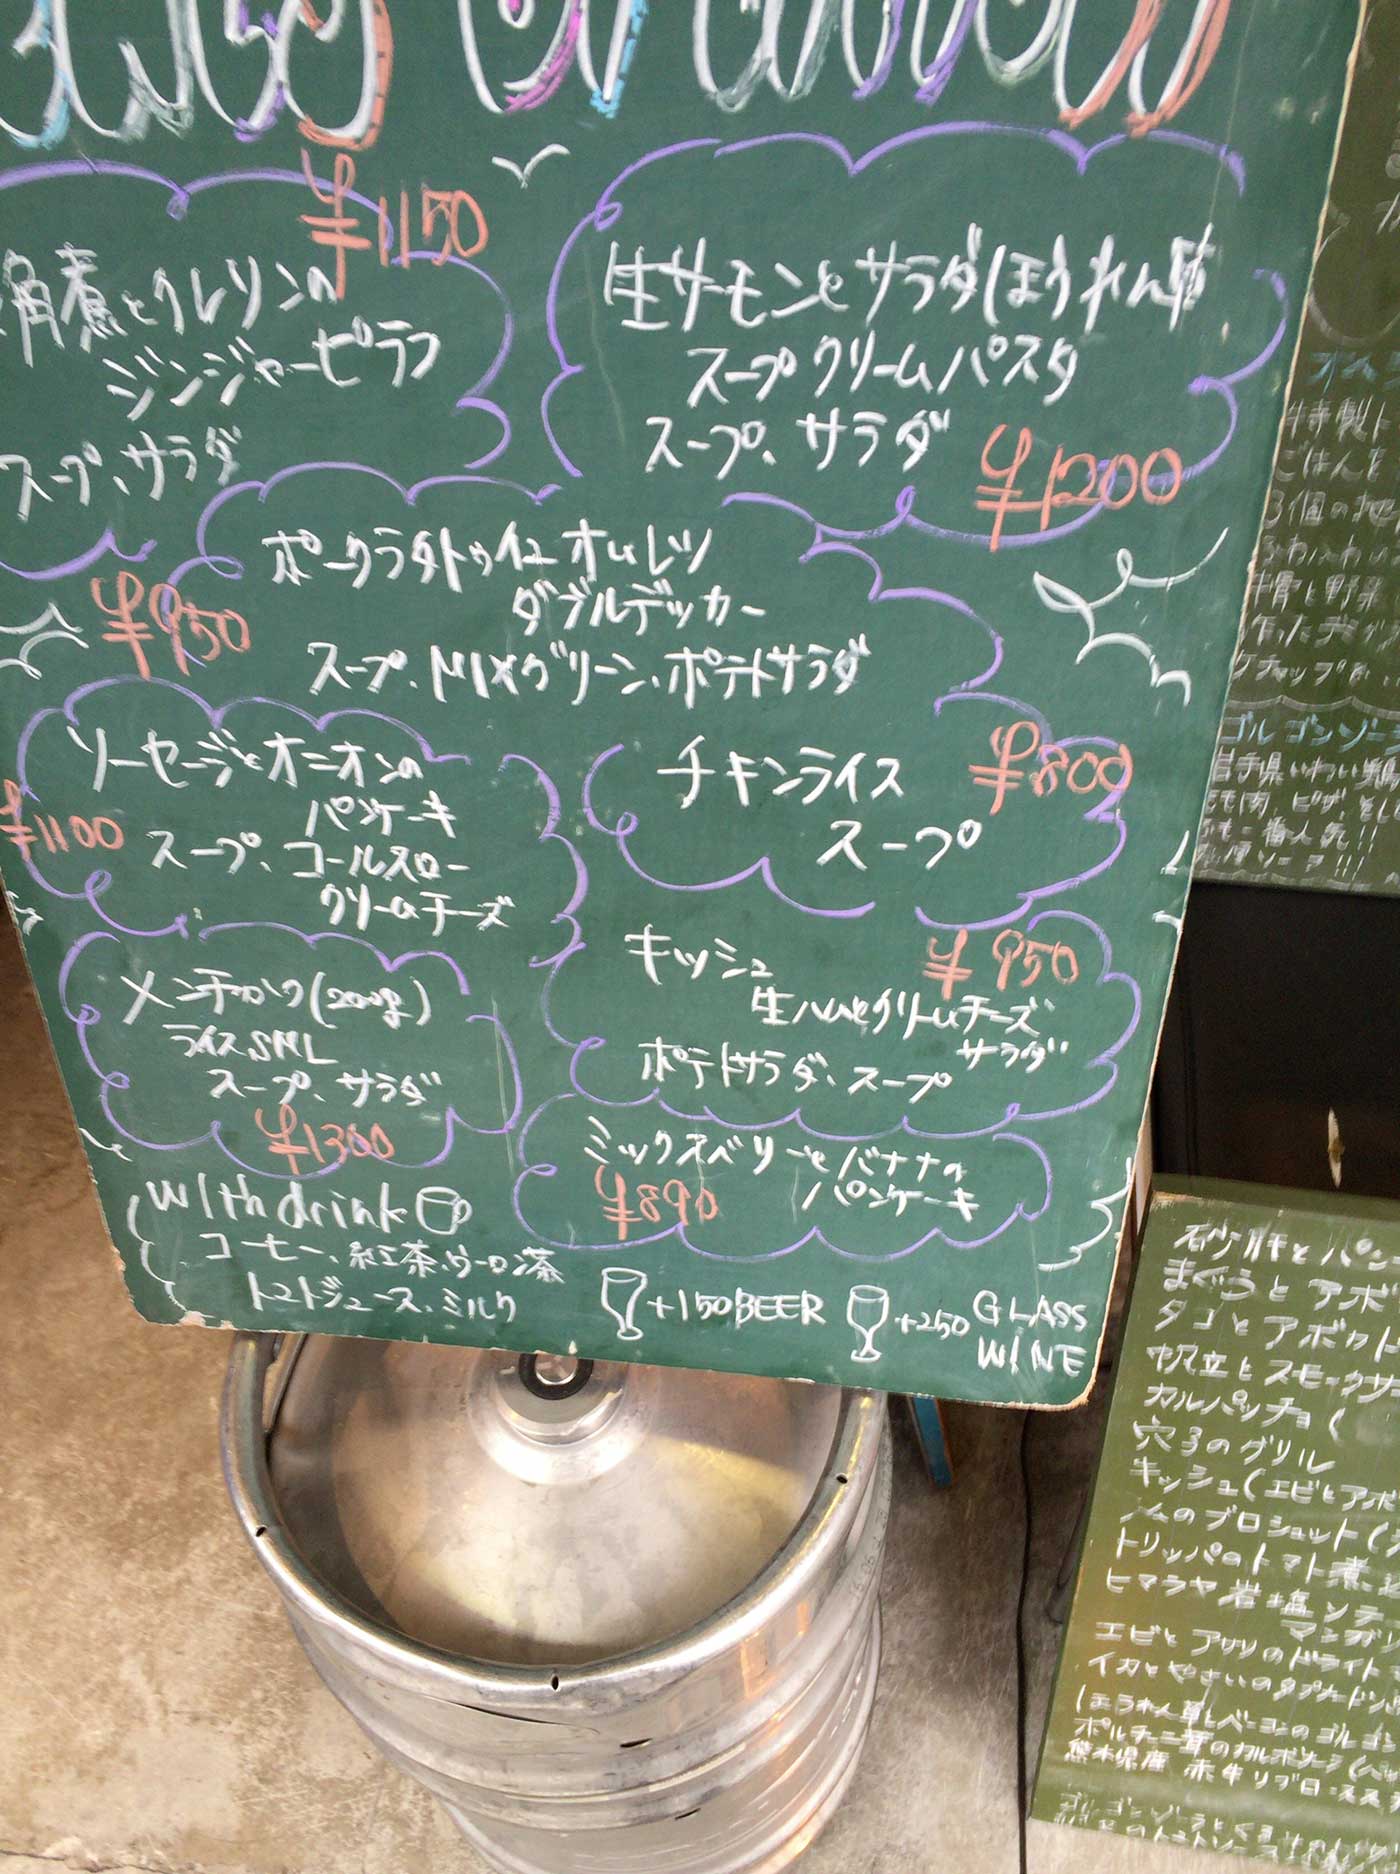 ¥1150
角煮とクレソンの
ジンジャーピラフ
スープ、サラダ
生サーモンとサラダほうれん草
スープクリームパスタ
スープ、サラダ
¥1200
ポークラタトゥイユオムレツ
ダブルデッカー
¥950
スープ、MIXグリーン、ポテトサラダ
ソーセージとオニオンの
パンケーキ
¥1100
スープ、コールスロー
クリームチーズ
チキンライス
¥800
スープ
メンチカツ(200g)
ライスSML
スープ、サラダ
¥1300
キッシュ
¥950
生ハムとクリームチーズ
サラダ
ポテトサラダ、スープ
ミックスベリーとバナナの
パンケーキ
¥890
with drink
コーヒー、紅茶、ウーロン茶
トマトジュース、ミルク
+150BEER
+250 GLASS
WINE
特製
ごはんを
3個の
ふわふわ
牛骨と野菜
ケチャップ
ゴルゴンゾー
岩手県いわい鶏
一番人気!!
砂肝とバン
まぐろとアボ
タコとアボカド
帆立とスモークサ
カルパッチョ(
穴子のグリル
キッシュ(エビとアボ
のブロシェット(
トリッパのトマト煮
ヒマラヤ岩塩
エビとアサリのドライト
イカとやさいの
ほうれん草とベーコンのゴルゴン
ポルチーニ茸のカルボナーラ(
熊本県産 赤牛リブロース
ゴルゴンゾーラとくるみの